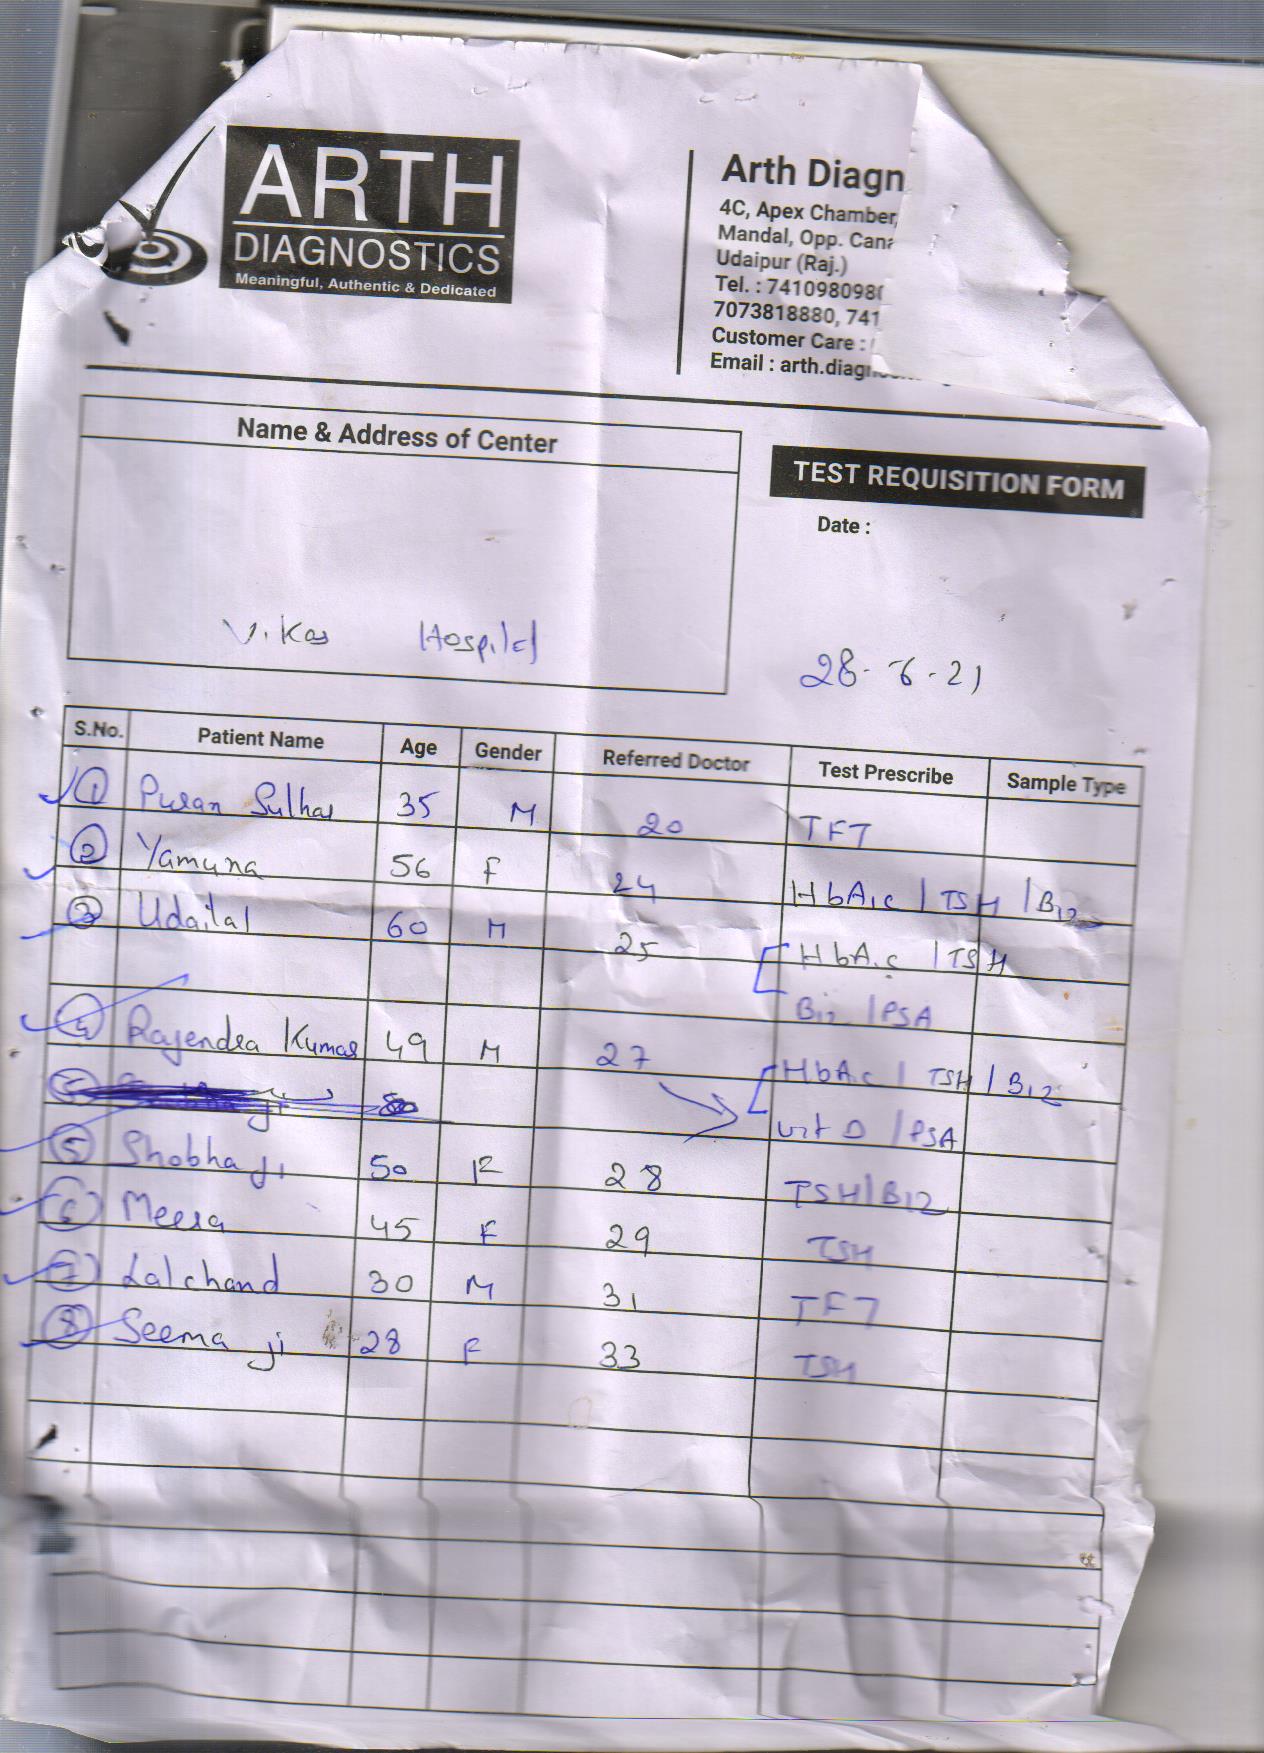 ARTH
DIAGNOSTICS
Meaningful, Authentic & Dedicated
Arth Diagn
4C, Apex Chamber,
Mandal, Opp. Cana
Udaipur (Raj.)
Tel. : 7410980980
7073818880, 741
Customer Care :
Email : arth.diagn
Name & Address of Center
Vikas Hospital
TEST REQUISITION FORM
Date :
28-6-21
S.No. Patient Name Age Gender Referred Doctor Test Prescribe Sample Type
1 Puran 35 M 20 TFT
2 Yamuna 56 F 24 HbA1c | TSH | B12
3 Udailal 60 M 25 HbA1c | TSH
B12 | PSA
4 Rajendra Kumar 49 M 27 HbA1c | TSH | B12
Vit D | PSA
5 Shobha ji 50 F 28 TSH | B12
6 Meera 45 F 29 TSH
7 Lalchand 30 M 31 TFT
8 Seema ji 28 F 33 TSH